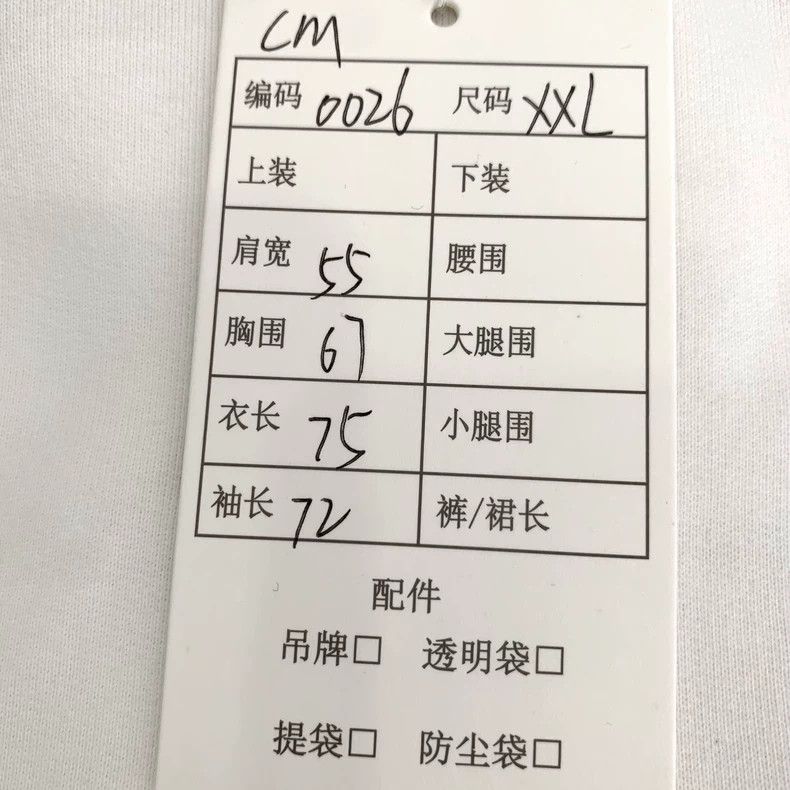 CM
编码 0026 尺码 XXL
上装 下装
肩宽 55 腰围
胸围 67 大腿围
衣长 75 小腿围
袖长 72 裤/裙长
配件
吊牌□ 透明袋□
提袋□ 防尘袋□